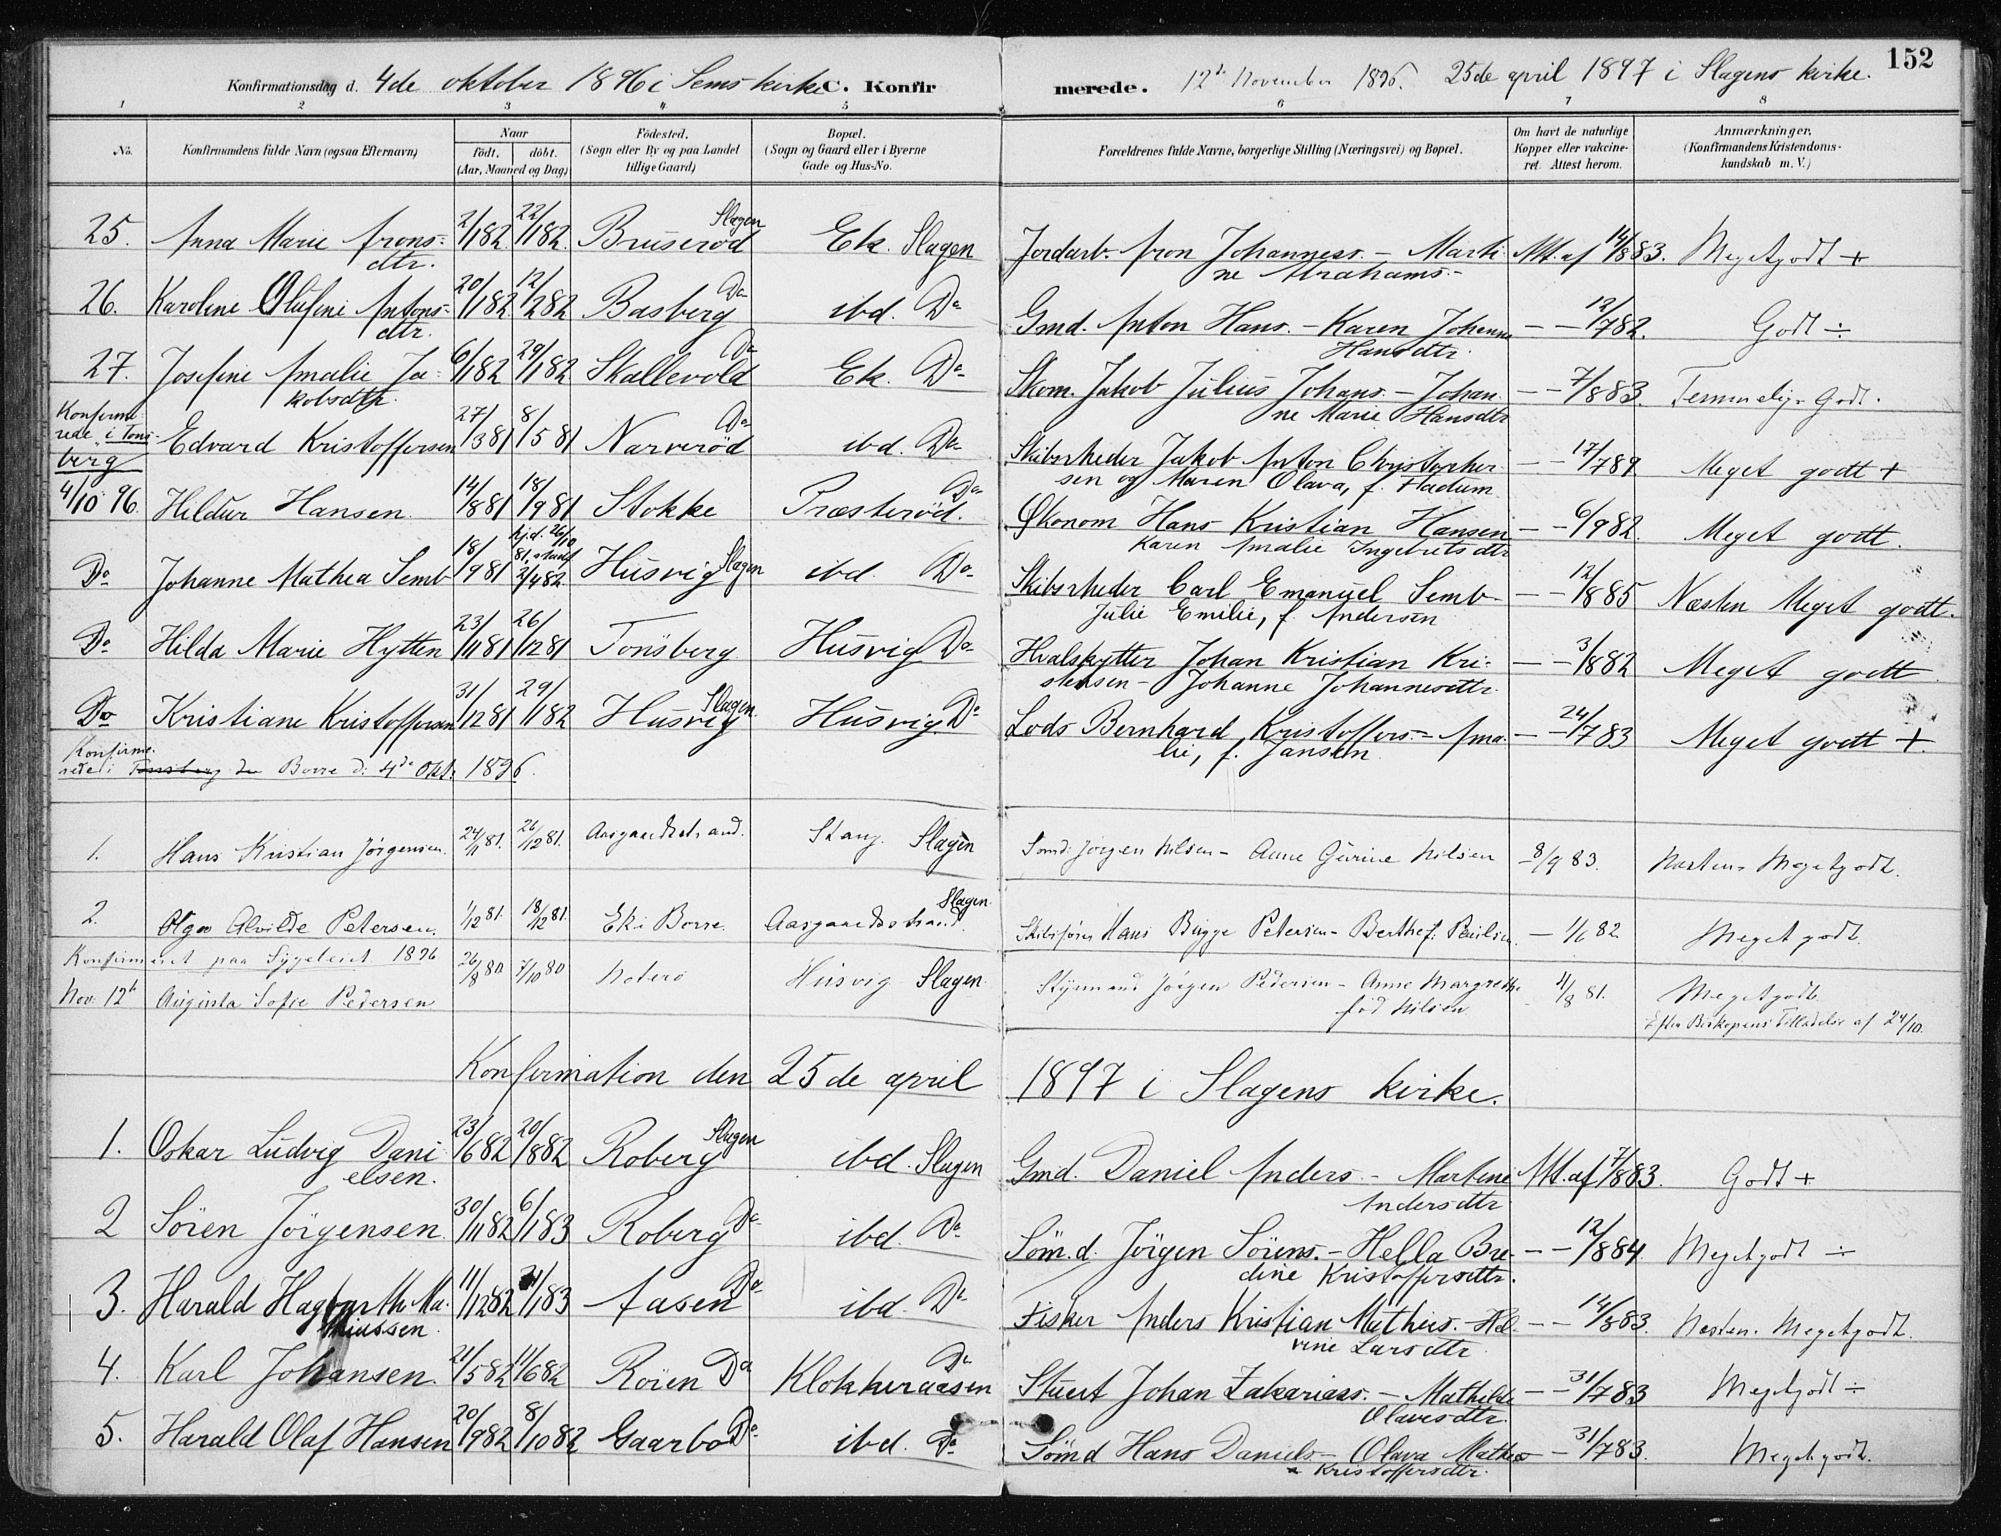 152
Konfirmationsdag d. 4de oktober 1896 i Sems kirke C. Konfirmerede. 12te November 1896. 25de april 1897 i Slagens kirke.
1 2 3 4 5 6 7 8
No. Konfirmandens fulde Navn (ogsaa Efternavn) Naar født, døbt. (Aar, Maaned og Dag) Fødested. (Sogn eller By og paa Landet tillige Gaard) Bopæl. (Sogn og Gaard eller i Byerne Gade og Hus-No. Forældrenes fulde Navne, borgerlige Stilling (Næringsvei) og Bopæl. Om havt de naturlige Kopper eller vaccineret. Attest herom. Anmærkninger. (Konfirmandens Kristendomskundskab m. V.)
25. Anna Marie Arons- 2/1 82 22/1 82. Bruserød Slagen Ek. Slagen Jordarb. Aron Johanness. - Marti- Att. af 14/8 83. Megetgodt +
dtr. ne Abrahams-
26. Karoline Olufine Antons- 20/1 82 12/2 82 Basberg Do ibd. Do Gmd. Anton Hans. - Karen Johanne - - 12/7 82. Godt ÷
dtr. Hansdtr.
27. Josefine Amalie Ja- 6/1 82 29/1 82 Skallevold Do Ek. Do Skom. Jakob Julius Johans. - Johan- - - 7/8 83. Temmelig Godt.
kobsdtr. ne Marie Hansdtr
Konfirmerede i Tønsberg 4/10 96.
Edvard Kristoffersen 27/3 81 8/5 81 Narverød Do ibd. Do Skibsrheder Jakob Anton Christopher- - - 17/7 89 Meget godt +
sen og Maren Olava, f.
Hildur Hansen 14/8 81 18/9 81 Stokke Præsterød. Do Økonom Hans Kristian Hansen - - 6/9 82. Meget godt.
Karen Amalie Ingebretsdtr
Do Johanne Mathea Semb 18/9 81 hj.d. 26/10 81, 2/4 82 Husvig Slagen ibd. Do Skibsrheder Carl Emanuel Semb - - - 12/8 85 Næsten Meget godt.
Julie Emilie, f. Andersen
Do Hilda Marie Hytten 23/11 81 26/12 81 Tønsberg Husvig Do Hvalskytter Johan Kristian Kri- - - 3/8 82 Meget godt
stensen - Johanne Johannesdtr.
Do Kristiane Kristoffersen 31/12 81 29/1 82 Husvig Slagen Husvig Do Lods Bernhard Kristoffers - Ama- - - 24/7 83 Meget godt +.
lie, f. Jansen
Konfirmerede i Tønsberg Borre d. 4de Okt. 1896.
1. Hans Kristian Jørgensen. 24/11 81. 26/12 81. Aasgaardstrand. Stang Slagen Sømd. Jørgen Nilsen - Anne Gurine Nilsen - 8/9 83. Næsten Megetgodt.
2. Olga Alvilde Petersen. 1/12 81. 18/12 81. Ek i Borre. Aasgaardsstrand. Slagen Skibsfører Hans Bugge Petersen - Berthe f. Paulsen. - 1/6 82 Meget godt.
Konfirmeret paa Sygeleiet 1896
Nov. 12te Augusta Sofie Pedersen 26/8 80 7/10 80 Nøterø Husvig Slagen. Styrmand Jørgen Pedersen - Anne Margrethe 4/8 81. Megetgodt.
fød Nilsen Efter Biskopens Tilladelse af 24/10.
Konfirmation den 25de april 1897 i Slagens kirke.
1. Oskar Ludvig Dani- 23/6 82 20/8 82 Roberg Slagen ibd. Slagen Gmd. Daniel Anders. - Martine Att. af 17/8 83. Godt +
elsen. Andersdtr
2 Sören Jörgensen. 30/11 82 6/1 83 Roberg Do ibd. Do Sømd. Jörgen Sörens. - Hella Bre- - - 12/8 84. Megetgodt ÷
dine Kristoffersdtr.
3. Harald Hagbarth Ma- 11/12 82 /1 83 Aasen Do ibd. Do Fisker Anders Kristian Mathis. - Hel- - - 14/8 83. Næsten Megetgodt.
thiussen. vine Larsdtr
4. Karl Johansen. 21/5 82 11/6 82 Röien Do Klokkeraasen Do Stuert Johan Zakariass. - Mathilde - - 31/7 83 Megetgodt ÷
Olavesdtr.
5. Harald Olaf Hansen 20/9 82 8/10 82 Gaarbo Do ibd. Do Sømd Hans Daniels - Olava Mathea - 31/7 83. Megetgodt.
Kristoffersdtr.